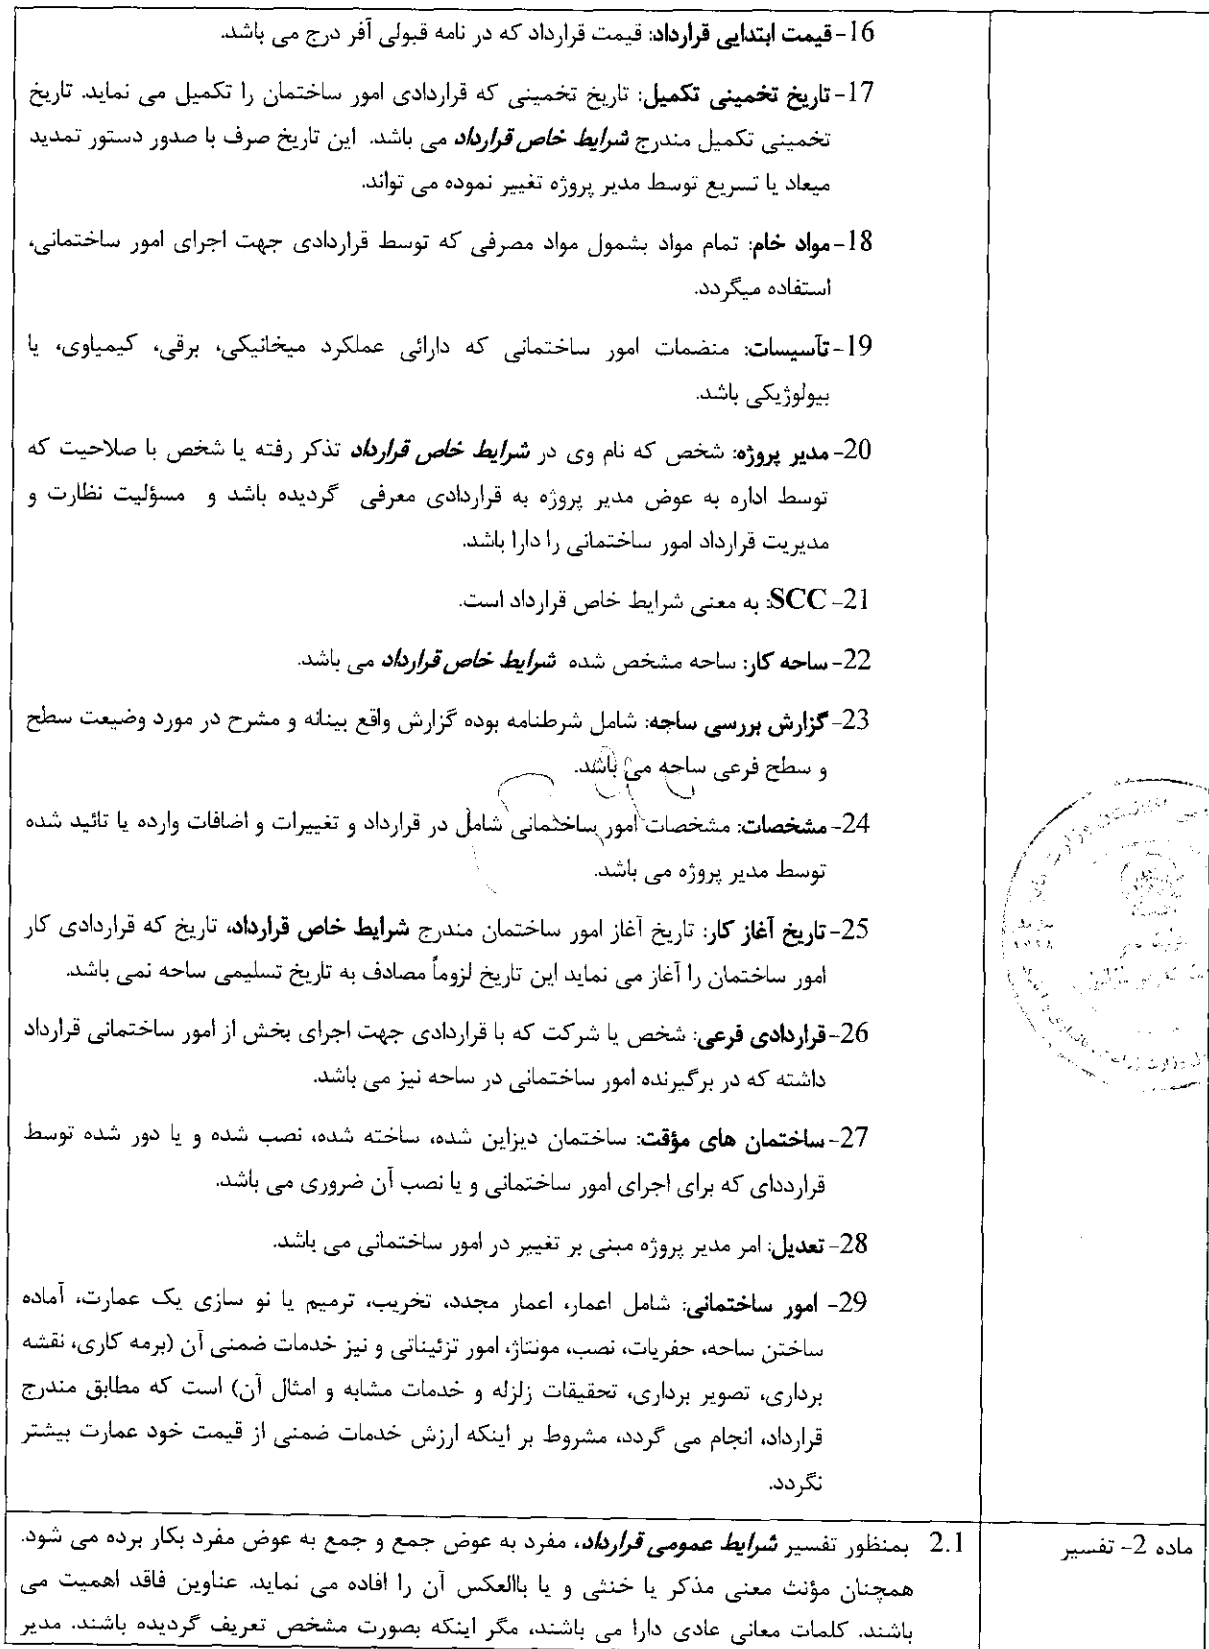 16-قیمت ابتدایی قرارداد: قیمت قرارداد که در نامه قبولی آفر درج می باشد.
17-تاریخ تخمینی تکمیل: تاریخ تخمینی که قراردادی امور ساختمان را تکمیل می نماید. تاریخ
تخمینی تکمیل مندرج شرایط خاص قرارداد می باشد. این تاریخ صرف با صدور دستور تمدید
میعاد یا تسریع توسط مدیر پروژه تغییر نموده می تواند.
18-مواد خام: تمام مواد بشمول مواد مصرفی که توسط قراردادی جهت اجرای امور ساختمانی،
استفاده میگردد.
19-تآسیسات: منضمات امور ساختمانی که دارائی عملکرد میخانیکی، برقی، کیمیاوی، یا
بیولوژیکی باشد.
20-مدیر پروژه: شخص که نام وی در شرایط خاص قرارداد تذکر رفته یا شخص با صلاحیت که
توسط اداره به عوض مدیر پروژه به قراردادی معرفی گردیده باشد و مسؤلیت نظارت و
مدیریت قرارداد امور ساختمانی را دارا باشد.
21- SCC: به معنی شرایط خاص قرارداد است.
22-ساحه کار: ساحه مشخص شده شرایط خاص قرارداد می باشد.
23-گزارش بررسی ساجه: شامل شرطنامه بوده گزارش واقع بینانه و مشرح در مورد وضیعت سطح
و سطح فرعی ساحه می باشد.
24-مشخصات: مشخصات امور ساختمانی شامل در قرارداد و تغییرات و اضافات وارده یا تائید شده
توسط مدیر پروژه می باشد.
25-تاریخ آغاز کار: تاریخ آغاز امور ساختمان مندرج شرایط خاص قرارداد، تاریخ که قراردادی کار
امور ساختمان را آغاز می نماید این تاریخ لزوماً مصادف به تاریخ تسلیمی ساحه نمی باشد.
26-قراردادی فرعی: شخص یا شرکت که با قراردادی جهت اجرای بخش از امور ساختمانی قرارداد
داشته که در برگیرنده امور ساختمانی در ساحه نیز می باشد.
27-ساختمان های مؤقت: ساختمان دیزاین شده، ساخته شده، نصب شده و یا دور شده توسط
قرارددای که برای اجرای امور ساختمانی و یا نصب آن ضروری می باشد.
28-تعدیل: امر مدیر پروژه مبنی بر تغییر در امور ساختمانی می باشد.
29- امور ساختمانی: شامل اعمار، اعمار مجدد، تخریب، ترمیم یا نو سازی یک عمارت، آماده
ساختن ساحه، حفریات، نصب، مونتاژ، امور تزئیناتی و نیز خدمات ضمنی آن (برمه کاری، نقشه
برداری، تصویر برداری، تحقیقات زلزله و خدمات مشابه و امثال آن) است که مطابق مندرج
قرارداد، انجام می گردد، مشروط بر اینکه ارزش خدمات ضمنی از قیمت خود عمارت بیشتر
نگردد.
ماده 2- تفسیر
2.1 بمنظور تفسیر شرایط عمومی قرارداد، مفرد به عوض جمع و جمع به عوض مفرد بکار برده می شود.
همچنان مؤنث معنی مذکر یا خنثی و یا باالعکس آن را افاده می نماید. عناوین فاقد اهمیت می
باشند. کلمات معانی عادی دارا می باشند، مگر اینکه بصورت مشخص تعریف گردیده باشند. مدیر